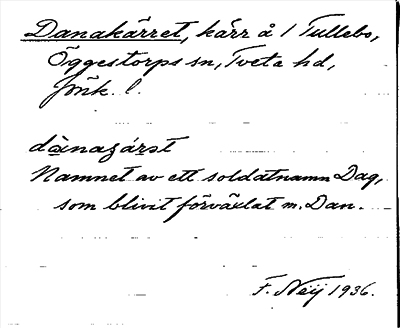 Danakärret, kärr å 1 Tullebo,
Öggestorps sn, Tveta hd,
Jönk. l.
dànazárst
Namnet av ett soldatnamn Dag,
som blivit förväxlat m. Dan.
F. Neij 1936.